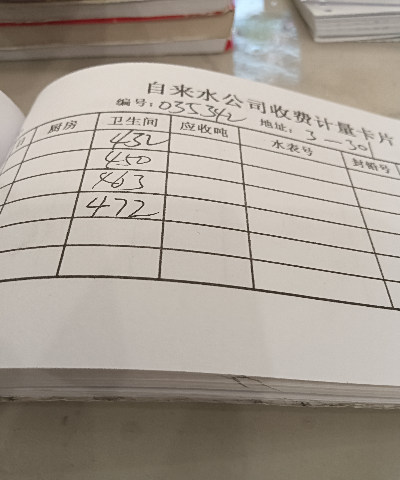 自来水公司收费计量卡片
编号:035342 地址:3—301
日 厨房 卫生间 应收吨 水表号 封铅号
432
450
463
472